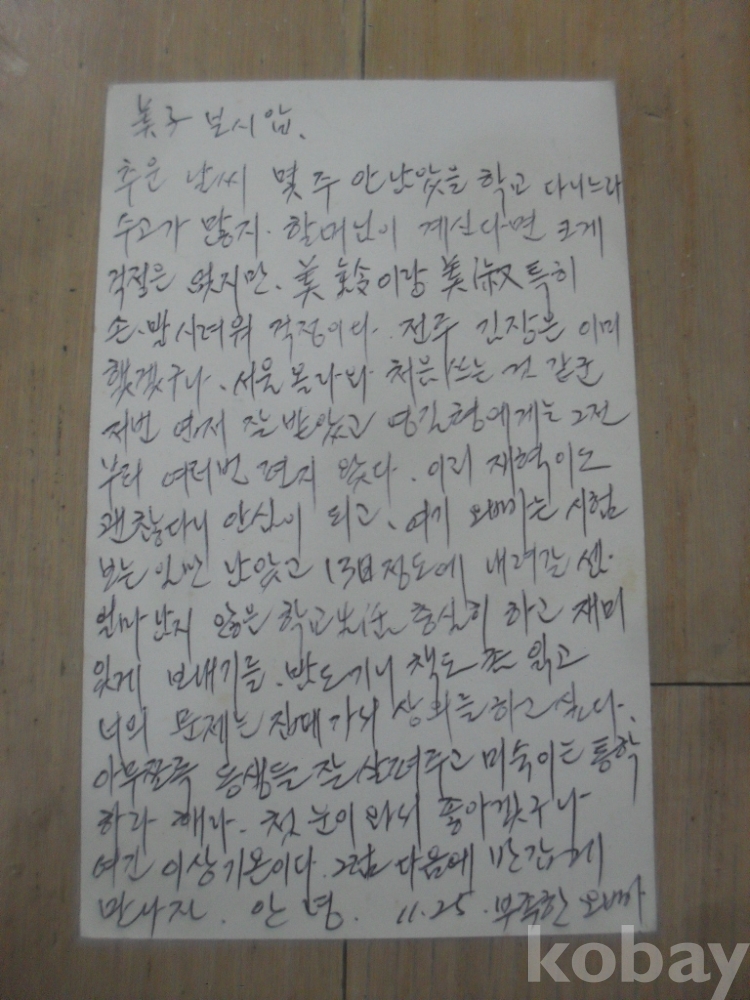 美子 보시압.
추운 날씨 몇 주 안 남았을 학교 다니느라
수고가 많지. 할머님이 계신다면 크게
걱절은 없지만. 美鈴이랑 美淑 특히
손·발 시려워 걱정이다. 전주 김장은 이미
했겠구나. 서울 올라와 처음 쓰는 것 같군
저번 편지 잘 받았고 영길형에게는 그전
부터 여러번 편지 왔다. 이리 재혁이도
괜찮다니 안심이 되고. 여기 오빠는 시험
보는 일만 남았고 13日정도에 내려갈 셈.
얼마 남지 않은 학교生活 충실히 하고 재미
있게 보내기를. 책도 좀 읽고
너의 문제는 집에 가서 상의를 하고 싶다.
아무쪼록 동생들 잘 살펴주고 미숙이는 통학
하라 해라. 첫 눈이 와서 좋아겠구나
여긴 이상기온이다. 그럼 다음에 반갑게
만나자. 안녕. 11.25. 부족한 오빠가
kobay